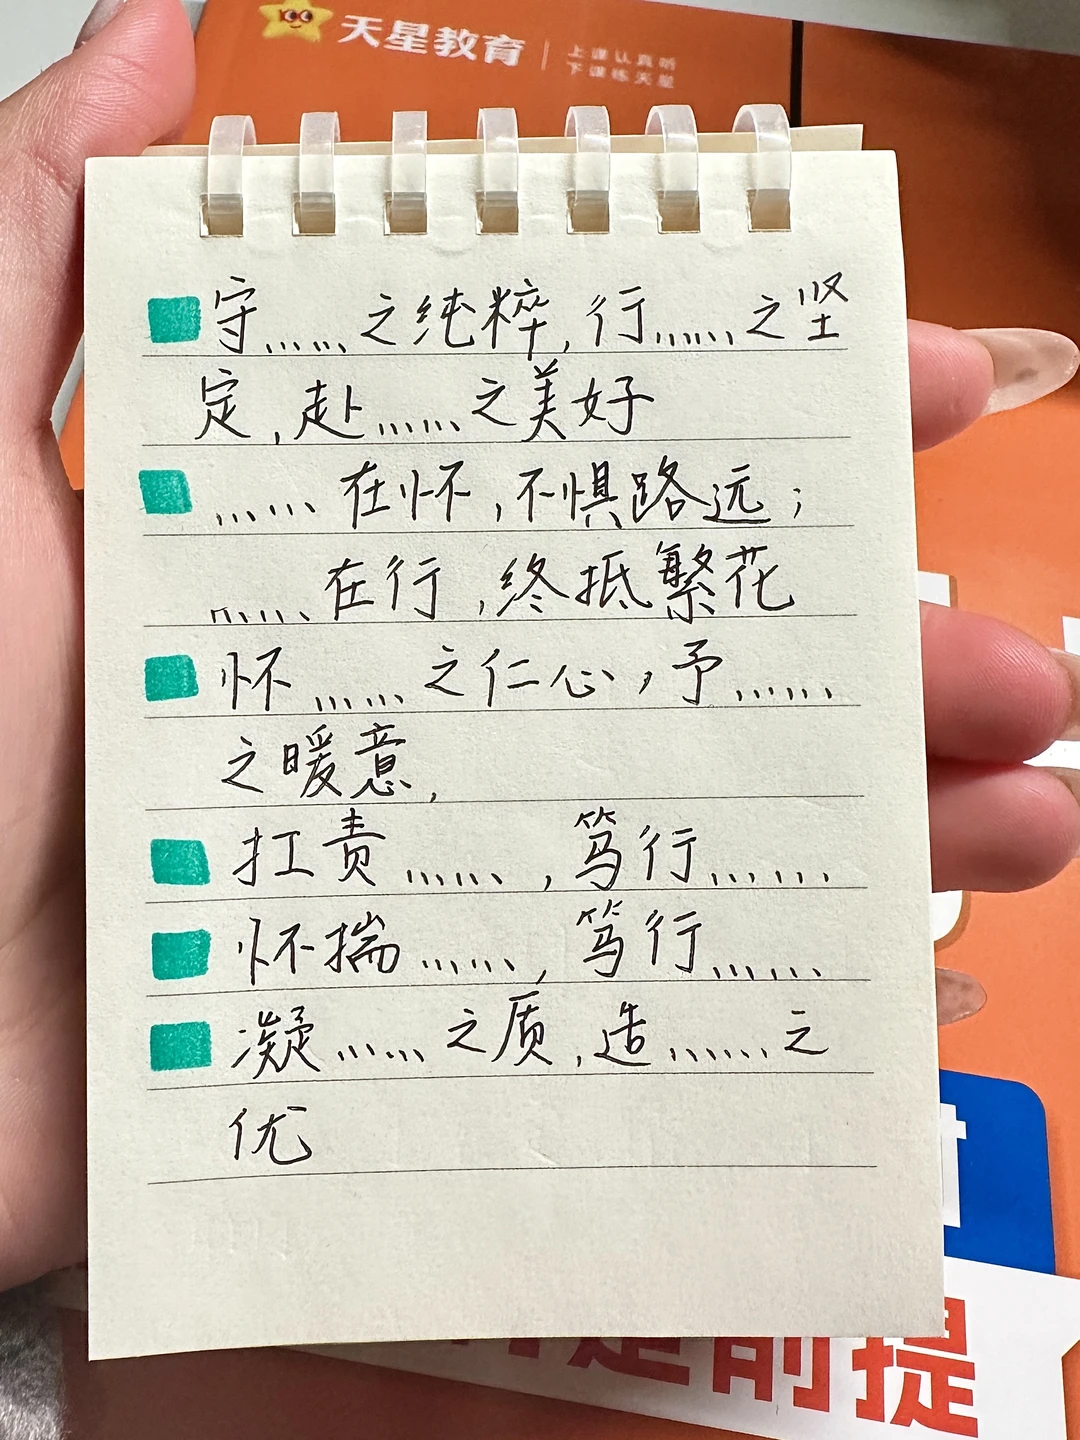 天星教育
上课认真听
下课练天星
守……之纯粹,行……之坚
定,赴……之美好
……在怀,不惧路远;
……在行,终抵繁花
怀……之仁心,予……
之暖意,
扛责……,笃行……
怀揣……,笃行……
凝……之质,造……之
优
前提